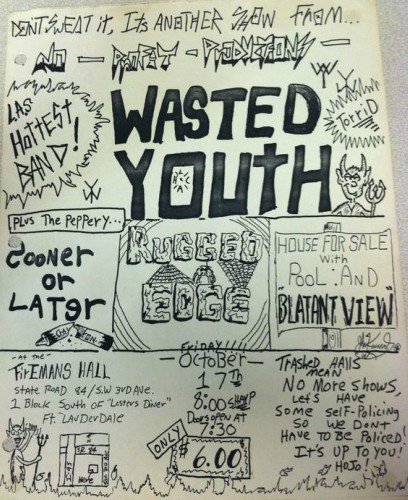 DON'T SWEAT it, It's ANOTHER SHOW From...
NO - PROFIT - PRODUCTIONS -
LAs
HoTTEST
BAND!
WASTED
YOUTH
TorriD
Plus The Peppery...
SOONER
or
LATer
RUGGED
EDGE
HOUSE FOR SALE
With
PooL AND A
"BLATANT VIEW"
-AT the-
FirEMANS HALL
STATE ROAD 84/S.W 3RD AVE.
1 Block South of "Lesters Diner"
FT. LAUDERDALE
FRIDAY!!!!
OCTOBER
17th
8:00 SHARP
Doors open AT
7:30
ONLY
$6.00
TRASHED HALLS
MEAN
NO More Shows,
LeTs HAVE
Some Self-Policing
SO WE DONT
HAVE TO BE Policed!
IT'S UP TO YOU!
HOJO!
SR 84
Here